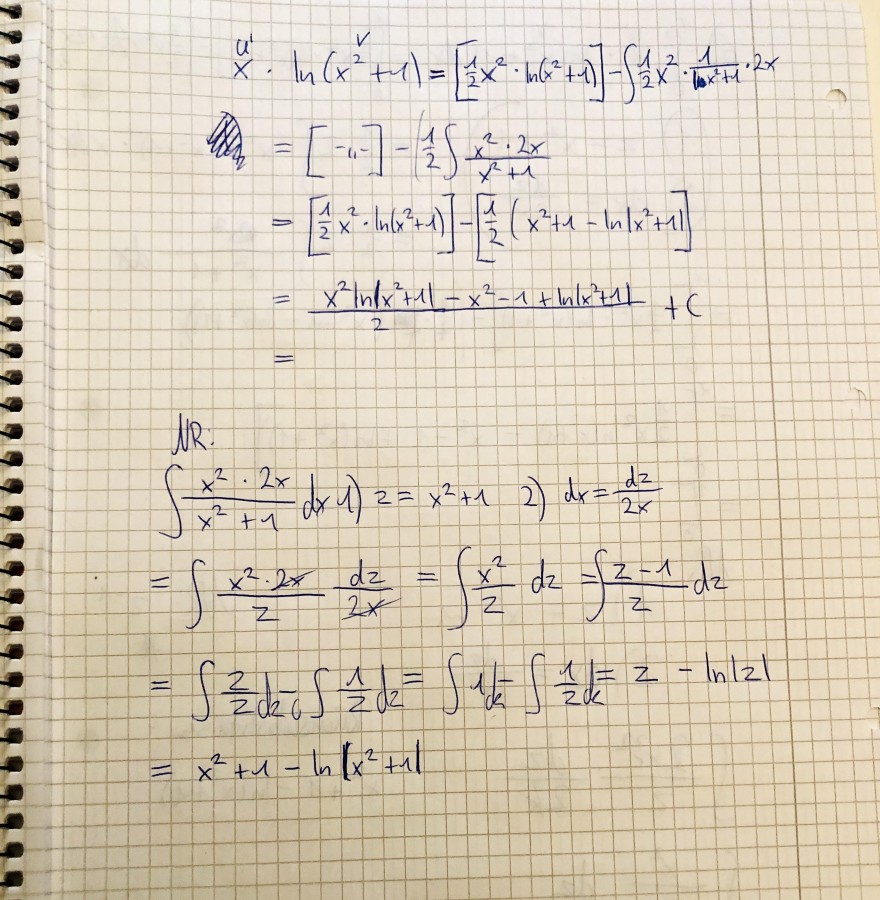 u' v
x · ln(x²+1) = [½x² · ln(x²+1)] - ∫ ½x² · 1/(x²+1) · 2x
= [-"-] - (½ ∫ (x² · 2x)/(x²+1)
= [½ x² · ln(x²+1)] - [½ (x²+1 - ln|x²+1|]
= (x² ln|x²+1| - x² - 1 + ln|x²+1|)/2 + C
=
NR:
∫ (x² · 2x)/(x²+1) dx 1) z = x²+1 2) dx = dz/2x
= ∫ (x² · 2x)/z dz/2x = ∫ x²/z dz = ∫ (z-1)/z dz
= ∫ z/z dz - ∫ 1/z dz = ∫ 1 dz - ∫ 1/z dz = z - ln|z|
= x²+1 - ln|x²+1|